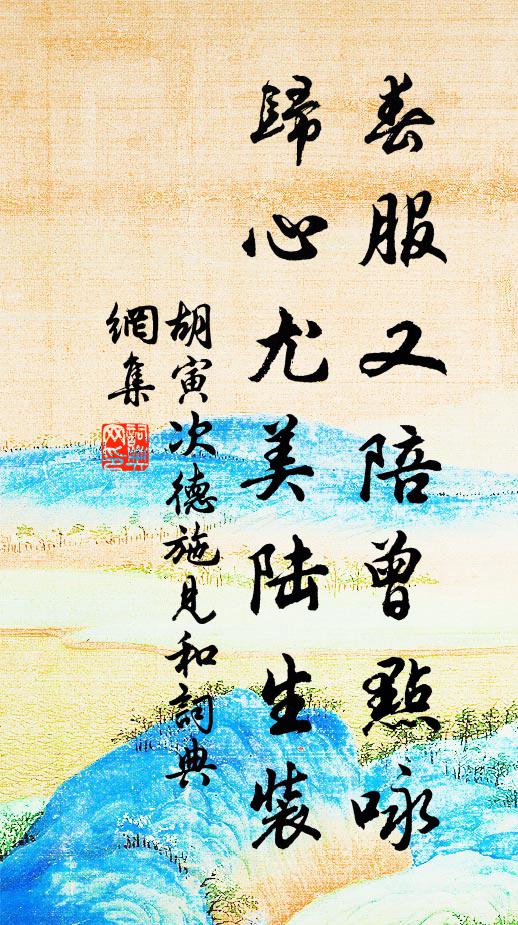 春服又陪曾點咏
歸心尤美陆生裝
胡寅次德施見和詞典
網集